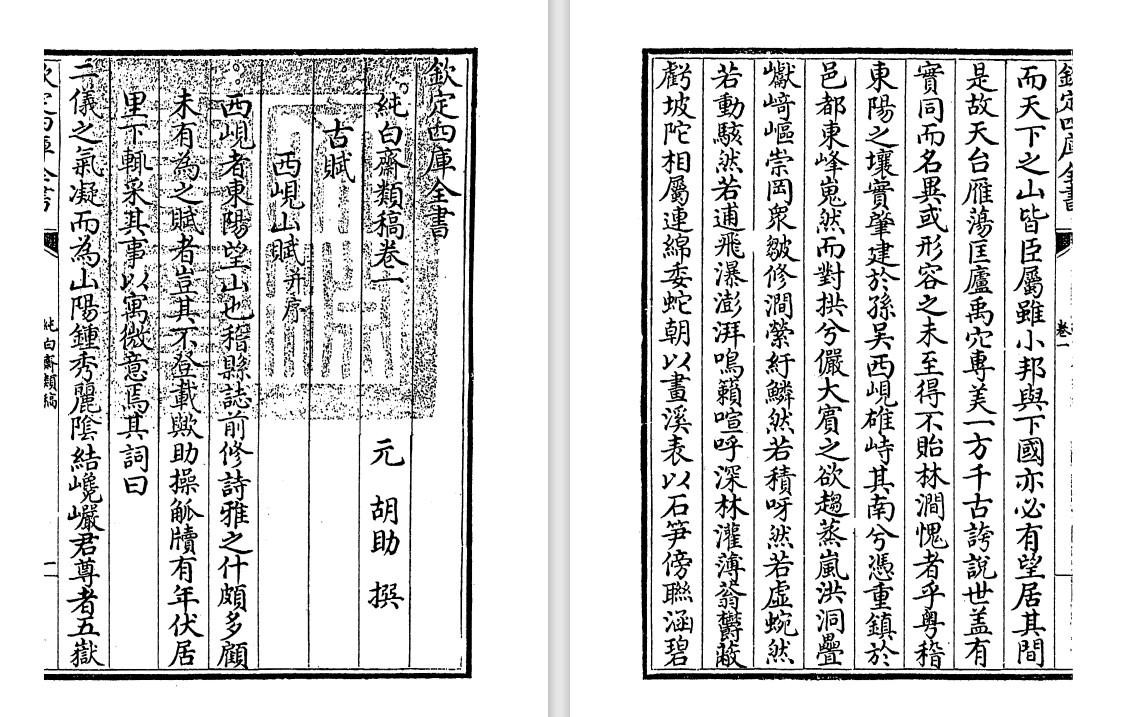 欽定四庫全書
純白齋類稿卷一
元 胡助 撰
古賦
西峴山賦并序
西峴者東陽望山也稽縣誌前修詩雅之什頗多顧
未有為之賦者豈其不登載歟助操觚牘有年伏居
里下輒采其事以寓微意焉其詞曰
二儀之氣凝而為山陽鍾秀麗陰結巉巖君尊者五嶽
純白齋類稿
卷一
而天下之山皆臣屬雖小邦與下國亦必有望居其間
是故天台雁蕩匡廬禹穴專美一方千古誇說世盖有
實同而名異或形容之未至得不貽林澗愧者乎粤稽
東陽之壤實肇建於孫吴西峴雄峙其南兮憑重鎮於
邑都東峰嵬然而對拱兮儼大賓之欲趨蒸嵐洪洞疊
巘崎嶇崇岡衆皴修澗縈紆鱗然若積呀然若虚蜿然
若動駭然若逋飛瀑澎湃鳴籟喧呼深林灌薄蓊欝蔽
虧坡陀相屬連綿委蛇朝以畫溪表以石笋傍聯涵碧